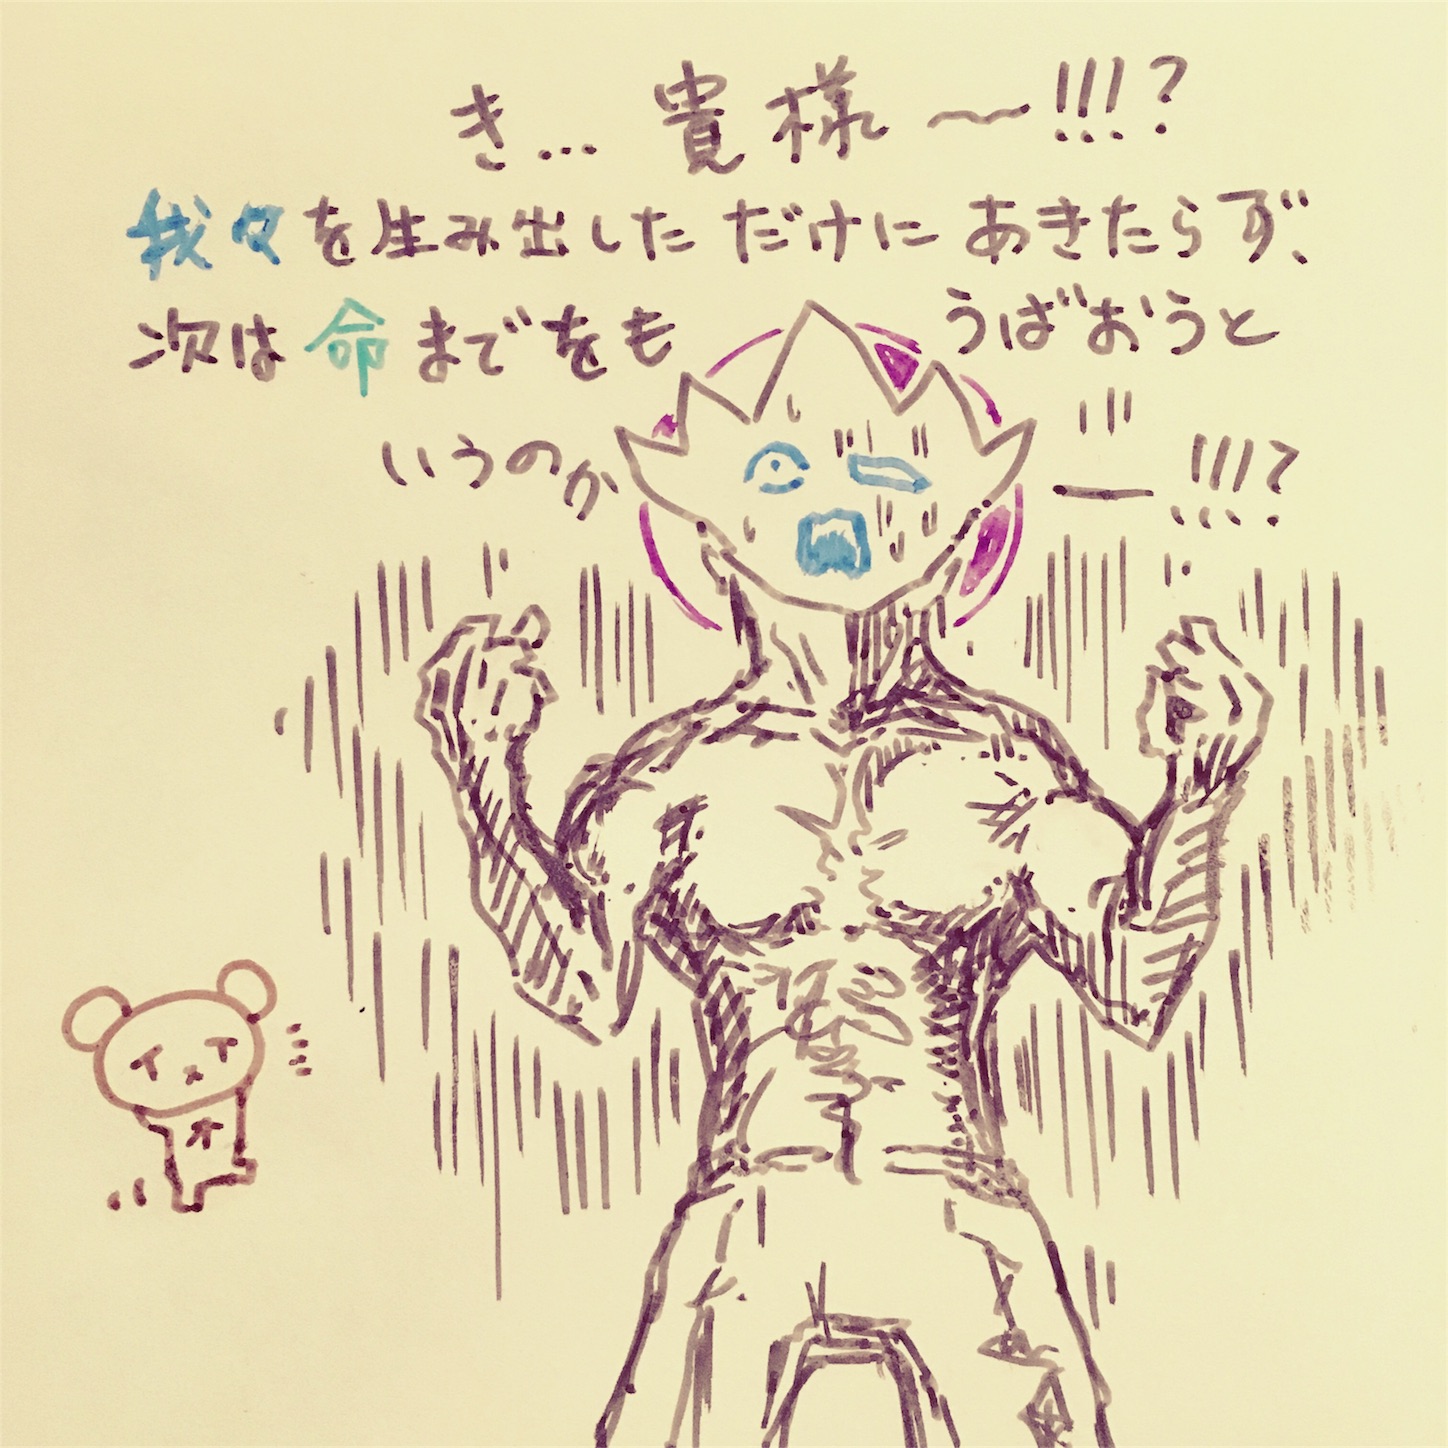 き… 貴様〜!!!?
我々を生み出しただけにあきたらず、
次は命までをもうばおうと
いうのかー!!!?
オ